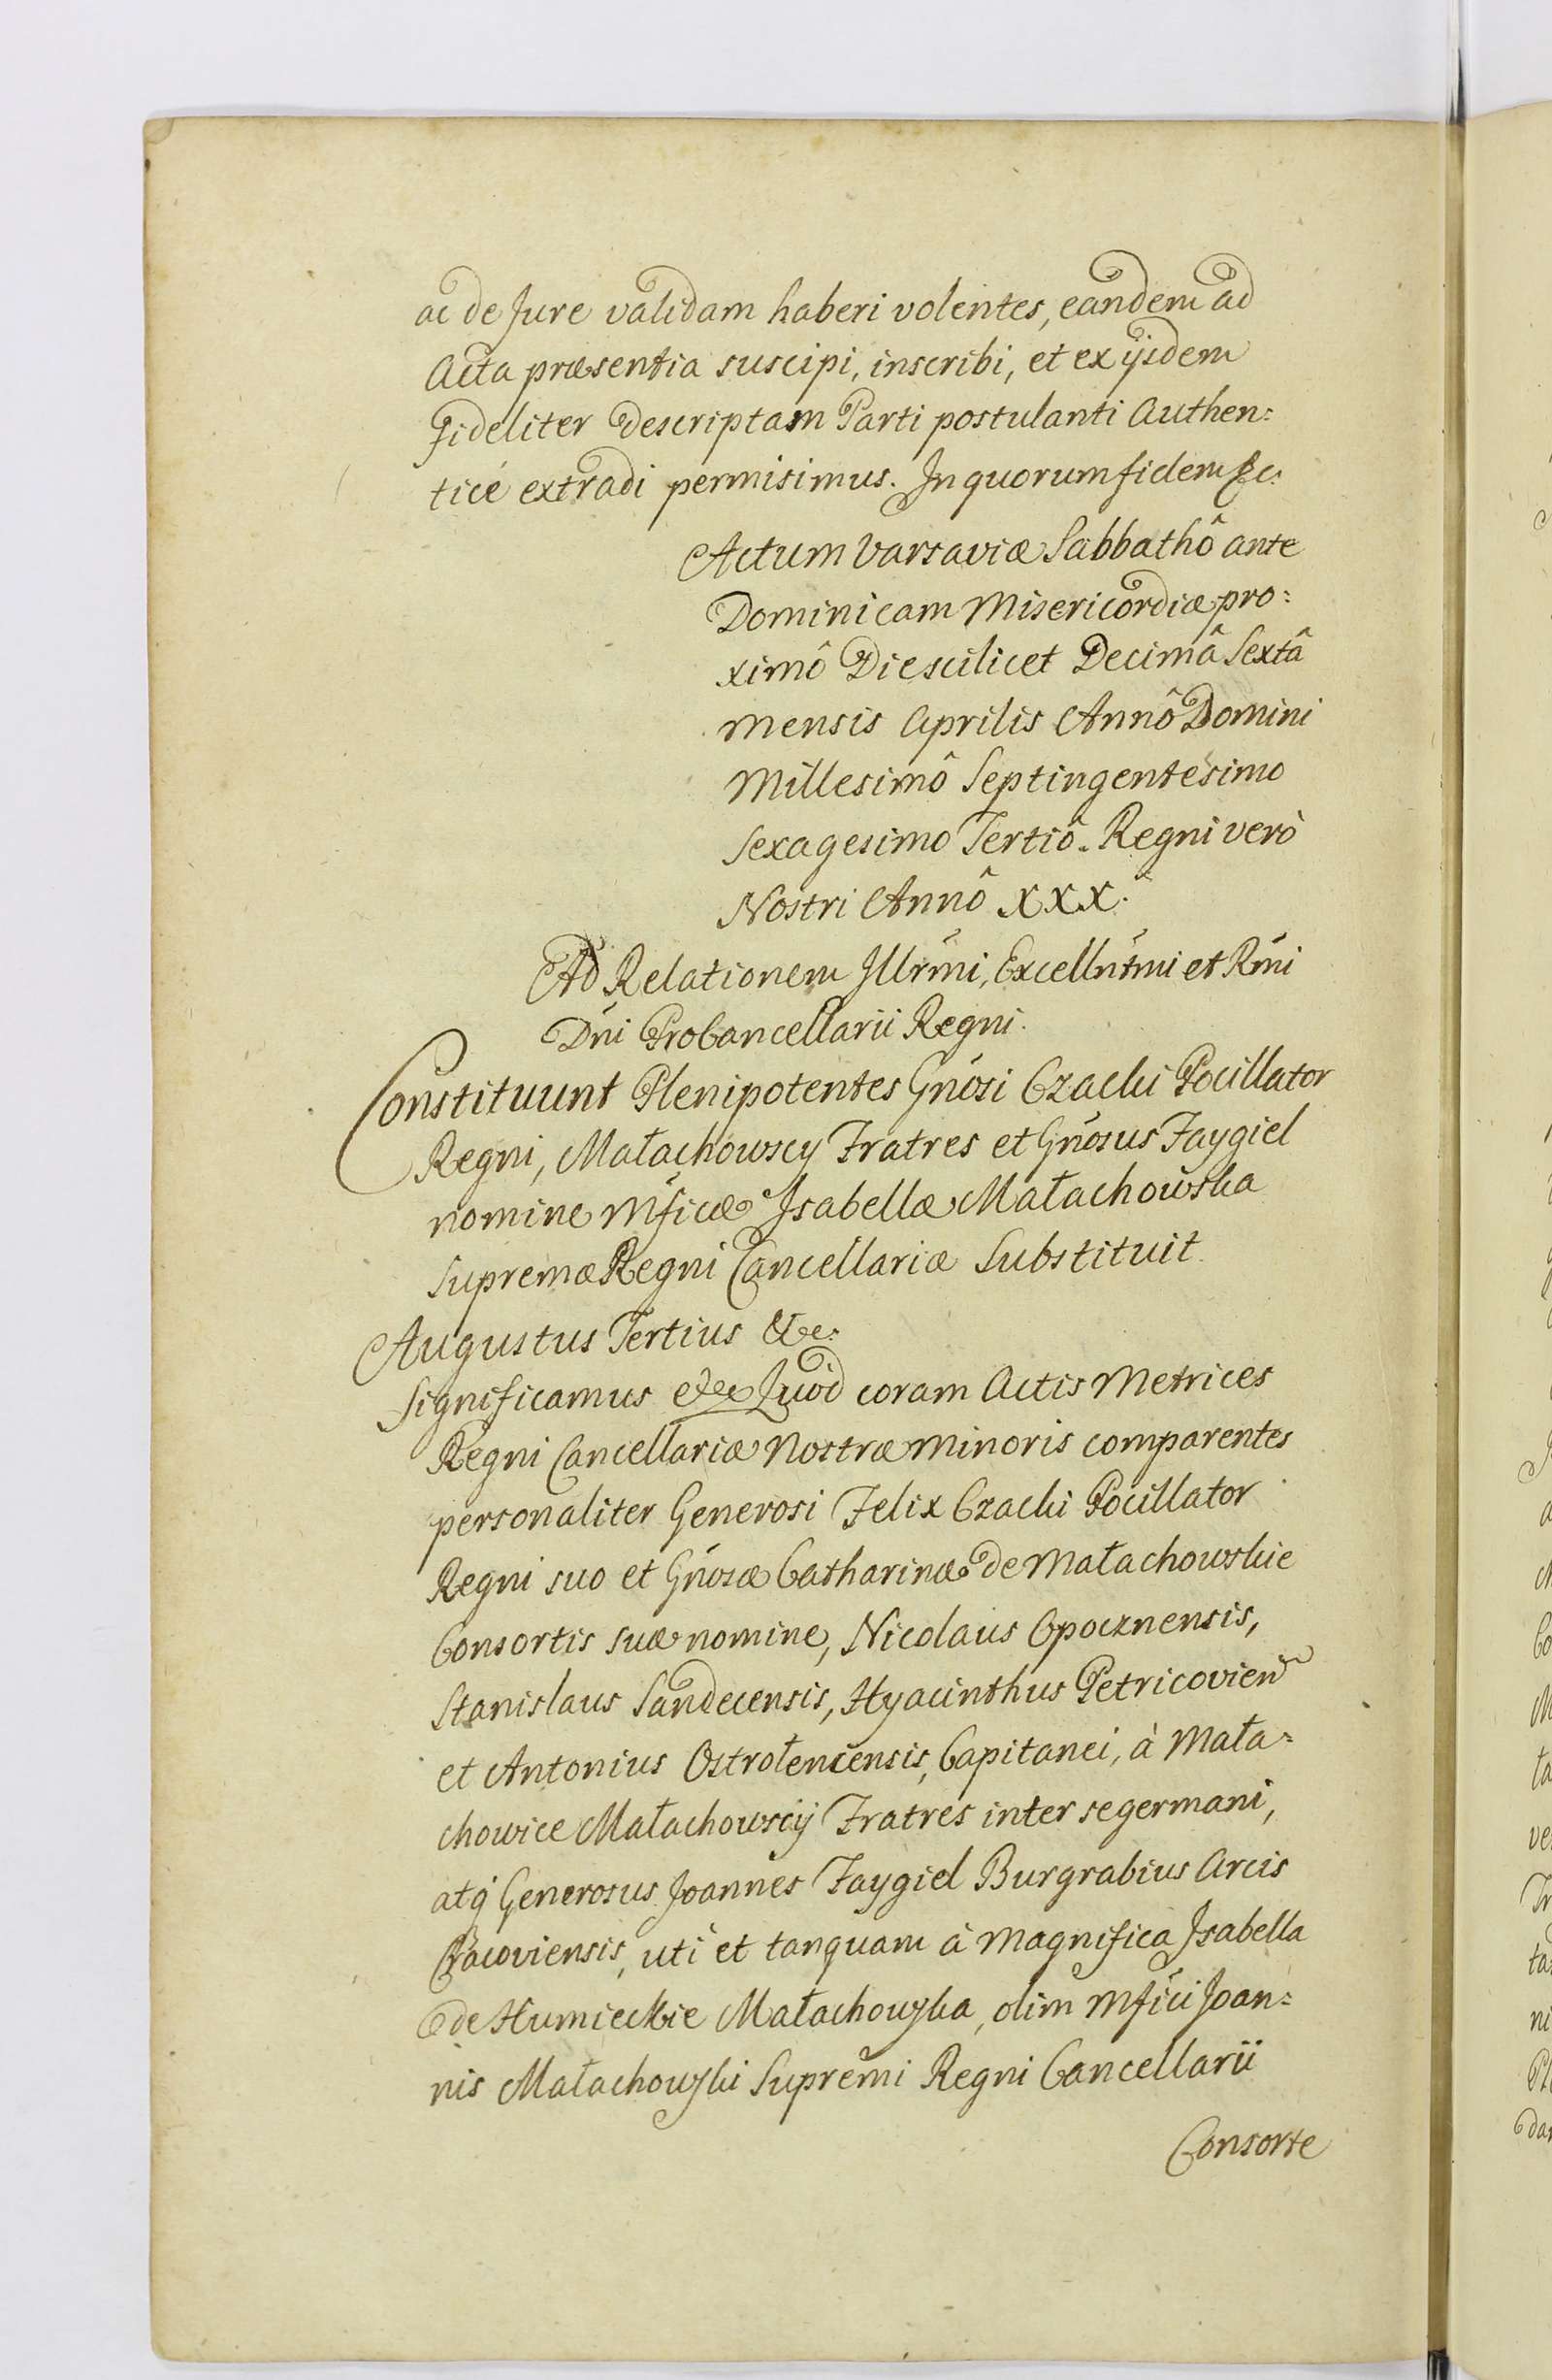 ac de Jure validam haberi volentes, eandem ad
Acta præsentia suscipi, inscribi, et ex ijsdem
Fideliter Descriptam Parti postulanti Authen:
ticé extradi permisimus. In quorum fidem &c.
Actum Varsaviæ Sabbathô ante
Dominicam Misericordiæ pro:
ximô Die scilicet Decimâ Sextâ
Mensis Aprilis Annô Domini
Millesimô Septingentesimo
Sexagesimo Tertiô. Regni verò
Nostri Annô XXX.
Ad Relationem Illrmi, Excellntmi et Rmi
Dni ProCancellarii Regni.
Constituunt Plenipotentes Gnosi Czacki Pocillator
Regni, Małachowscy Fratres et Gnosus Faygiel
nomine Mficæ Isabellæ Małachowska
Supremæ Regni Cancellariæ Substituit
Augustus Tertius &c:
Significamus &c Quod coram Actis Metrices
Regni Cancellariæ Nostræ Minoris comparentes
personaliter Generosi Felix Czacki Pocillator
Regni suo et Gnosæ Catharinæ de Małachowskie
Consortis suæ nomine, Nicolaus Opocznensis,
Stanislaus Sandecensis, Hyacinthus Petricovien
et Antonius Ostrołencensis, Capitanei, à Mała:
chowice Małachowscÿ Fratres inter se germani,
atq́ Generosus Joannes Faygiel Burgrabius Arcis
Cracoviensis, uti et tanquam à Magnifica Isabella
de Humieckie Małachowska, olim Mfici Joan:
nis Małachowski Supremi Regni Cancellarii
Consorte